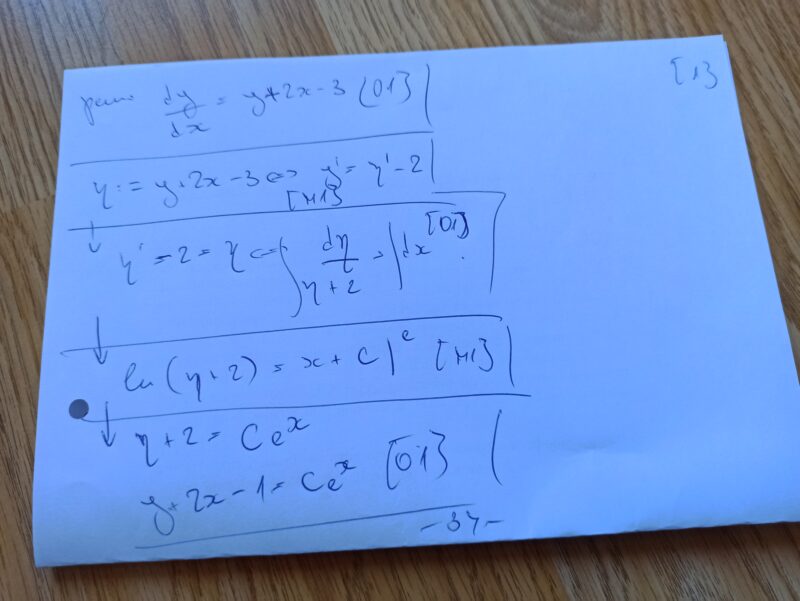 [1]
dy/dx = y+2x-3 [O1]
η := y+2x-3 ⇔ y' = η' - 2
[M1]
η' - 2 = η ⇔ ∫ dη/(η+2) = ∫ dx [O1]
ln(η+2) = x + C |e [M1]
η+2 = Ce^x
y+2x-1 = Ce^x [O1]